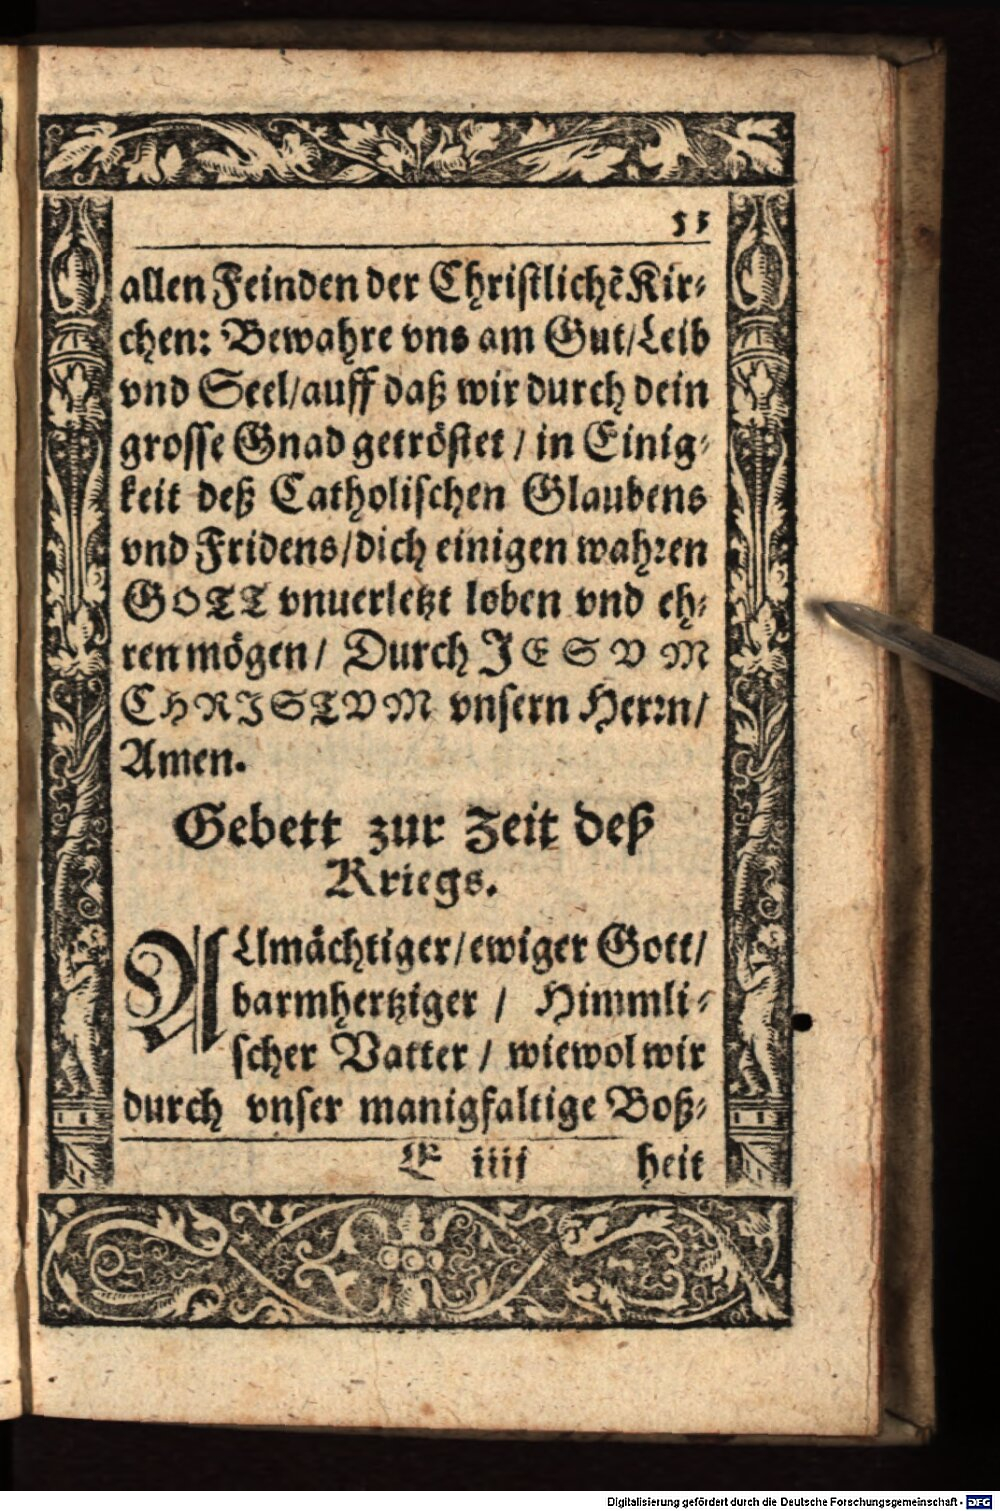 53
allen Feinden der Christlichẽ Kir-
chen: Bewahre vns am Gut/Leib
vnd Seel/auff daß wir durch dein
grosse Gnad getröstet / in Einig-
keit deß Catholischen Glaubens
vnd Fridens/dich einigen wahren
GOTT vnuerletzt loben vnd eh-
ren mögen / Durch JESVM
CHRISTVM vnsern Herrn/
Amen.
Gebett zur Zeit deß
Kriegs.
ALlmächtiger/ewiger Gott/
barmhertziger / Himmli-
scher Vatter / wiewol wir
durch vnser manigfaltige Boß-
iiij heit
Digitalisierung gefördert durch die Deutsche Forschungsgemeinschaft - DFG